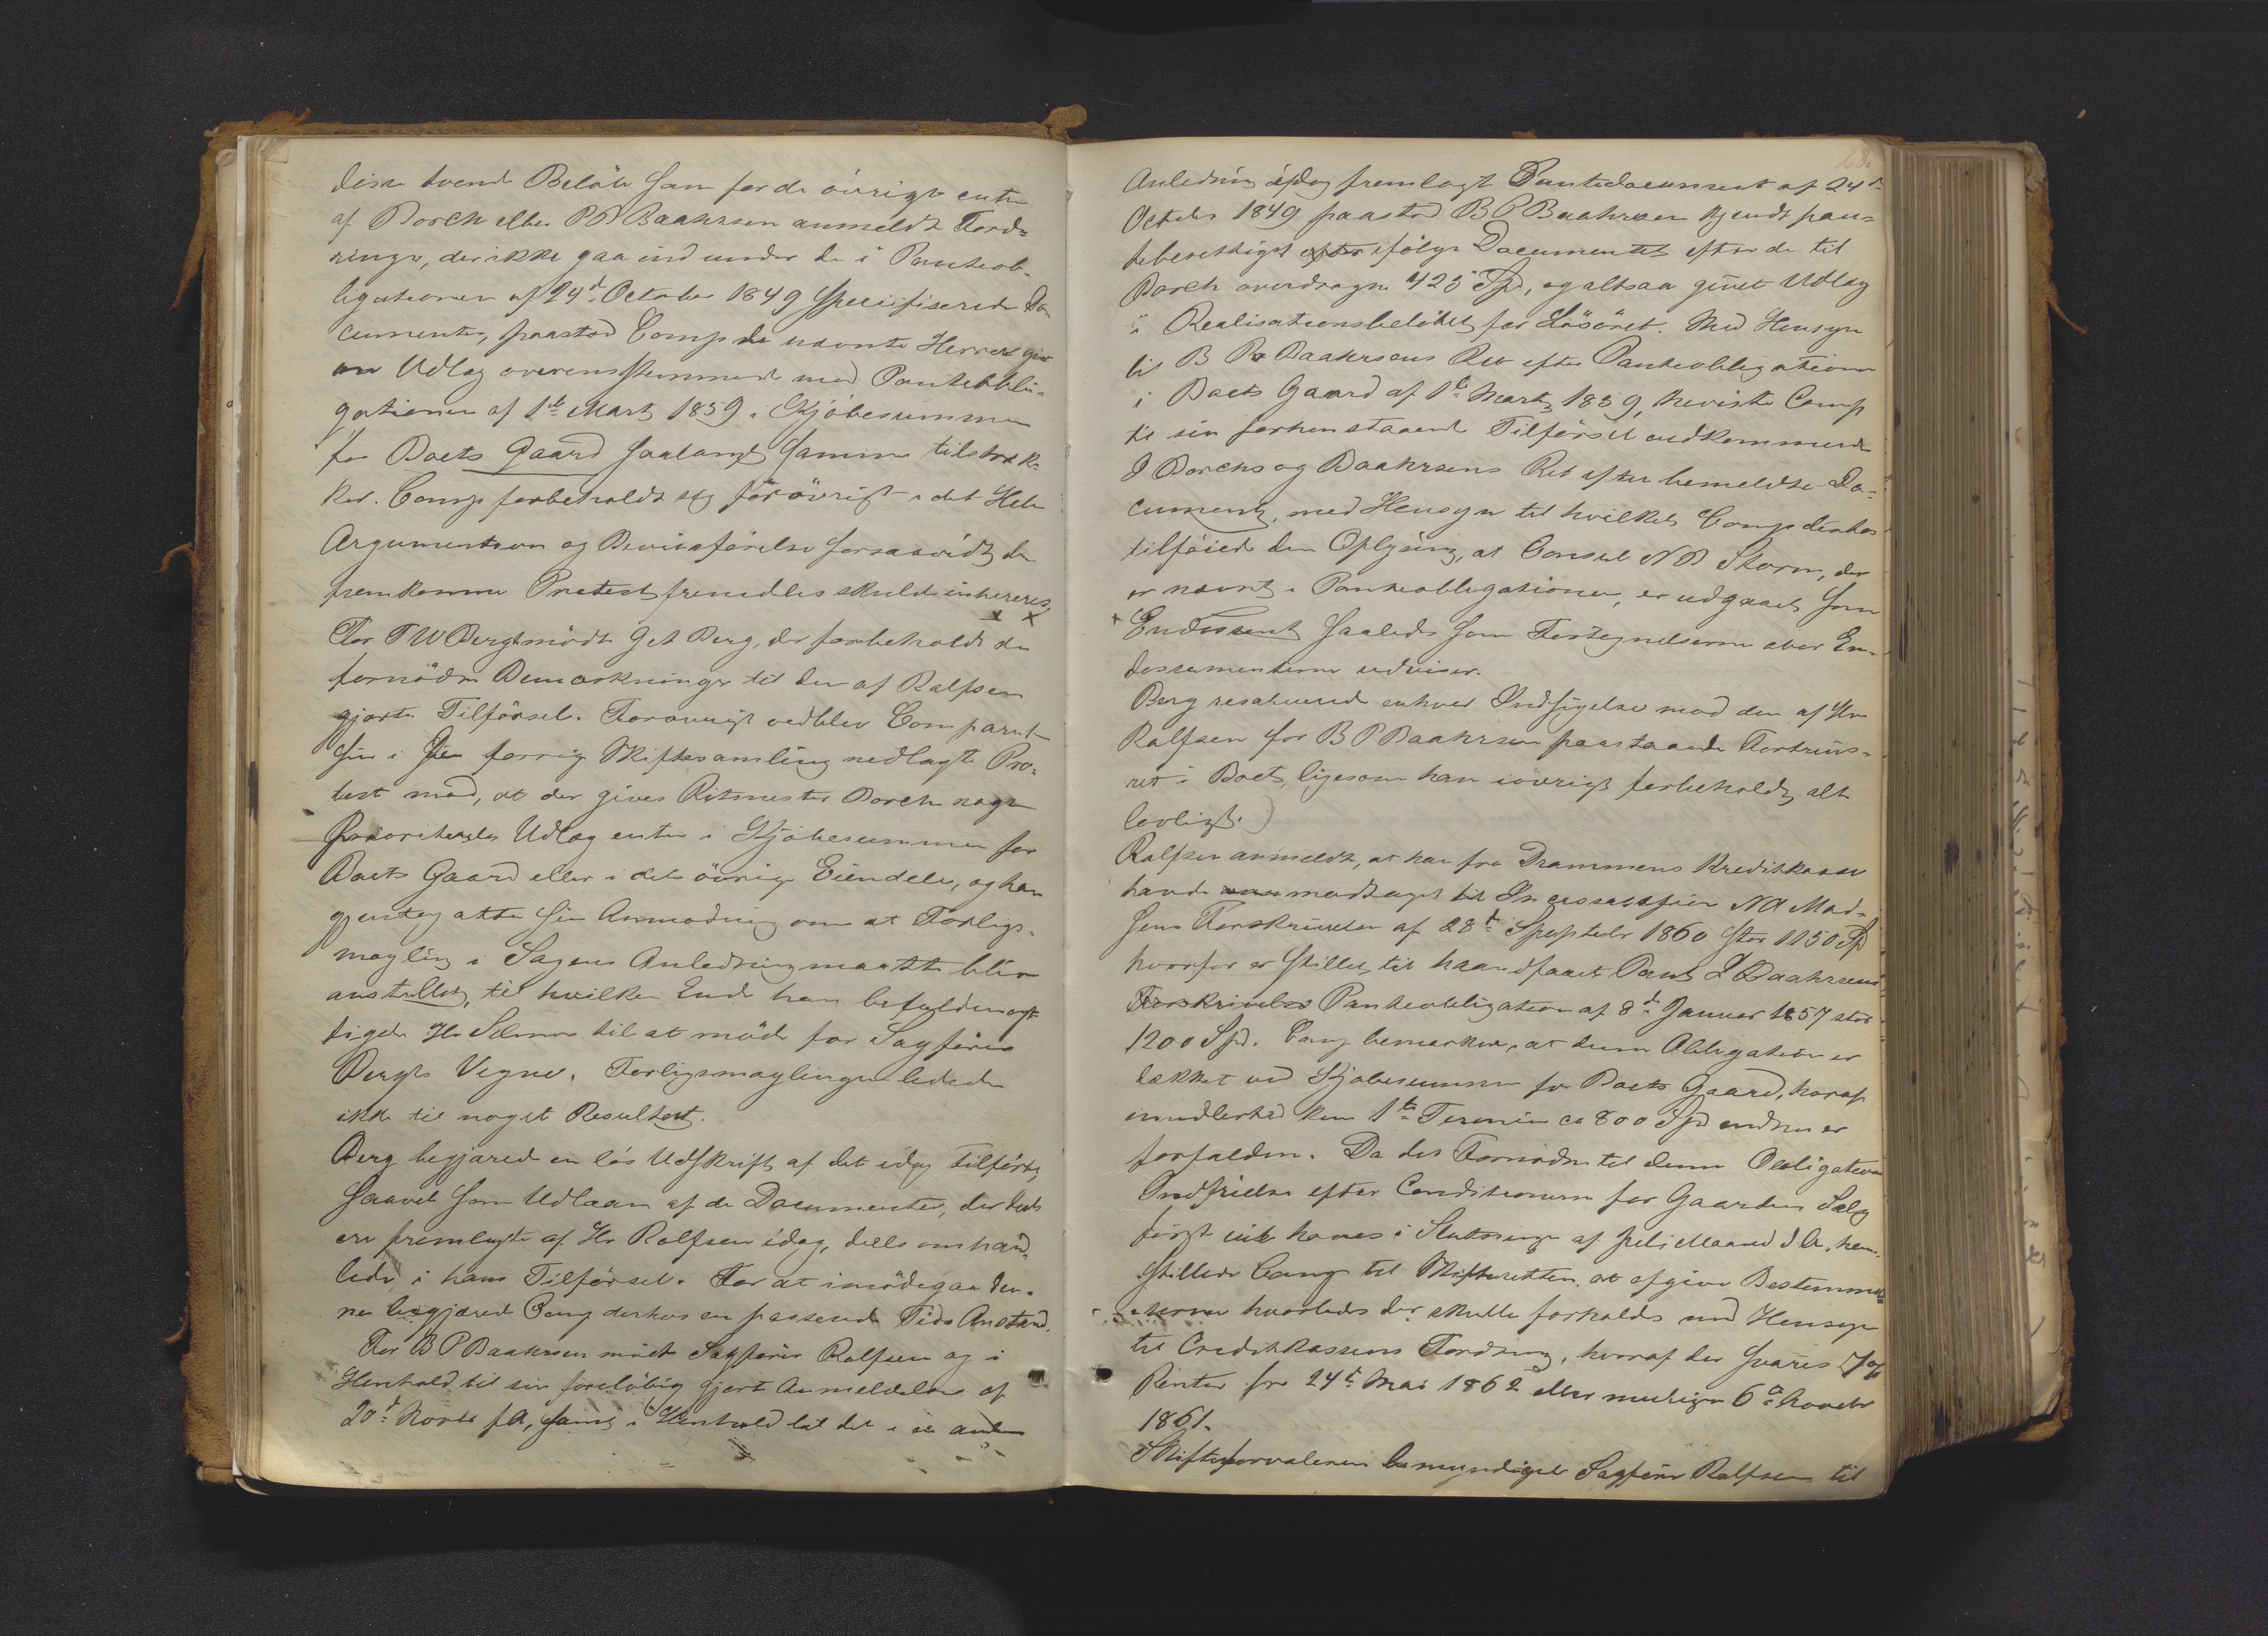 disse tvende Beløb som for de øvrige enten
af Borch eller B P Baahrsen anmeldte Ford-
ringer, der ikke gaa ind under de i Panteob-
ligationen af 24d October 1849 specifiserede Do-
cumenter, paastod Comp de nævnte Herrer given
Udlæg overensstemmende med Panteobli-
gationen af 1ste Marts 1859 i Kjöbesummen
for Boets Gaard saalangt samme tilstræk-
ker. Comp forbeholdt sig forövrigt i det Hele
Argumentson og Bevisførelse forsaavidt den
fremkomne Protest fremdeles skulde inhereres,
For T W Bergh mödte Get Berg, der forbeholdt de
fornödne Bemærkninger til den af Rolfsen
gjorte Tilförsel. Forøvrigt vedblev Comparent
sin i den forrige Skiftesamling nedlagte Pro-
test mod, at der gives Ritmester Borch noget
Prioriteret Udlæg enten i Kjöbesummen for
Boets Gaard eller i dets övrige Eiendele, og han
gjentog atter sin Anmodning om at Forligs-
mægling i Sagens Anledning maatte blive
anstillet, til hvilken Ende han befuldmæg-
tigede Hr til at möde for Sagfører
Berghs Vegne. Forligsmæglingen ledede
ikke til noget Resultat.
Berg begjærede en løs Udskrift af det idag tilførte,
saavel som Udlaan af de Documenter, der dels
ere fremlagte af Hr Rolfsen idag, dels omhand-
lede i hans Tilførsel. For at imödegaa den-
ne begjærede Comp derhos en passende Tids Anstand.
For B P Baahrsen mödte Sagfører Rolfsen og i
Henhold til sin foreløbig gjort Anmeldelse af
20d Novbr f A, samt i Henhold til det i en anden
Anledning idag fremlagte Pantedocument af 24de
October 1849 paastod B P Baahrsen kjendt pan-
teberettiget ifølge Documentet efter de til
Borch overdragne 425 Spd, og altsaa givet Udlæg
i Realisationsbeløbet for Løsöret. Med Hensyn
til B P Baahrsens Ret efter Panteobligationen
i Boets Gaard af 1ste Marts 1859, heviste Comp
til sin forhenstaaende Tilførsel vedkommende
Borchs og Baahrsens Ret efter bemeldte Do-
cument, med Hensyn til hvilket Comp derhos
tilføiede den Oplysning, at Consul N B Storm, der
er nævnt i Panteobligationen, er udgaaet som
Endossent saaledes som Tertegnelserne over En-
dossementerne udviser.
Berg reserverede enhver Indsigelse mod den af Hr
Rolfsen for B P Baahrsen paastaaede Fortrins-
ret i Boet, ligesom han iøvrigt forbeholdt alt
lovligt.
Rolfsen anmeldte, at han fra Drammens Kreditkasse
havde modtaget til Incassation N A Mad-
sens Forskrivelse af 28d Septebr 1860 stor 1150 Spd
hvorfor er stillet til haandfaaet Pant Baahrsens
Panteobligation af 8de Januar 1857 stor
1200 Spd. Comp bemærker, at denne Obligation er
dækket ved Kjøbesummen for Boets Gaard, hvoraf
imidlertid kun 1ste Termin ca 800 Spd endnu er
forfalden. Da det Fornødne til denne Obligations
Indfrielse efter Conditionerne for Gaardens Salg
først vil haves i Slutningen af Juli Maaned d A, hen-
stillede Comp til Skifteretten at afgive Bestemmelse
hvorledes der skulle forholdes med Hensyn
til Creditkassens Fordring, hvoraf der svares
Renter fra 24de Mai 1862 eller muligen 6de Novebr
1861.
Skifteforvalteren bemyndigede Sagfører Rolfsen til